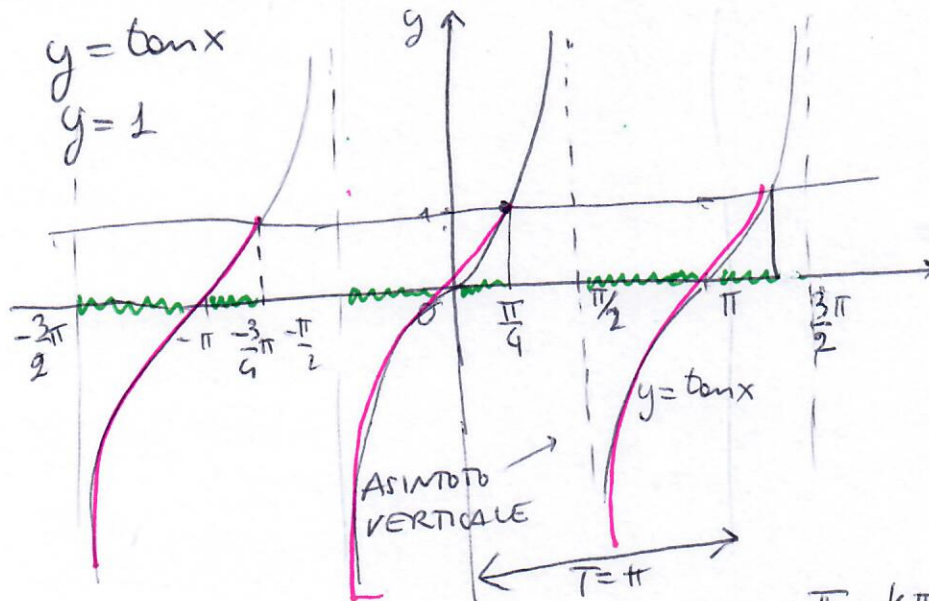 y = tan x
y = 1
y
1
-3/2 π
-π
-3/4 π
-π/2
0
π/4
π/2
π
3/2 π
y = tan x
ASINTOTO
VERTICALE
T = π